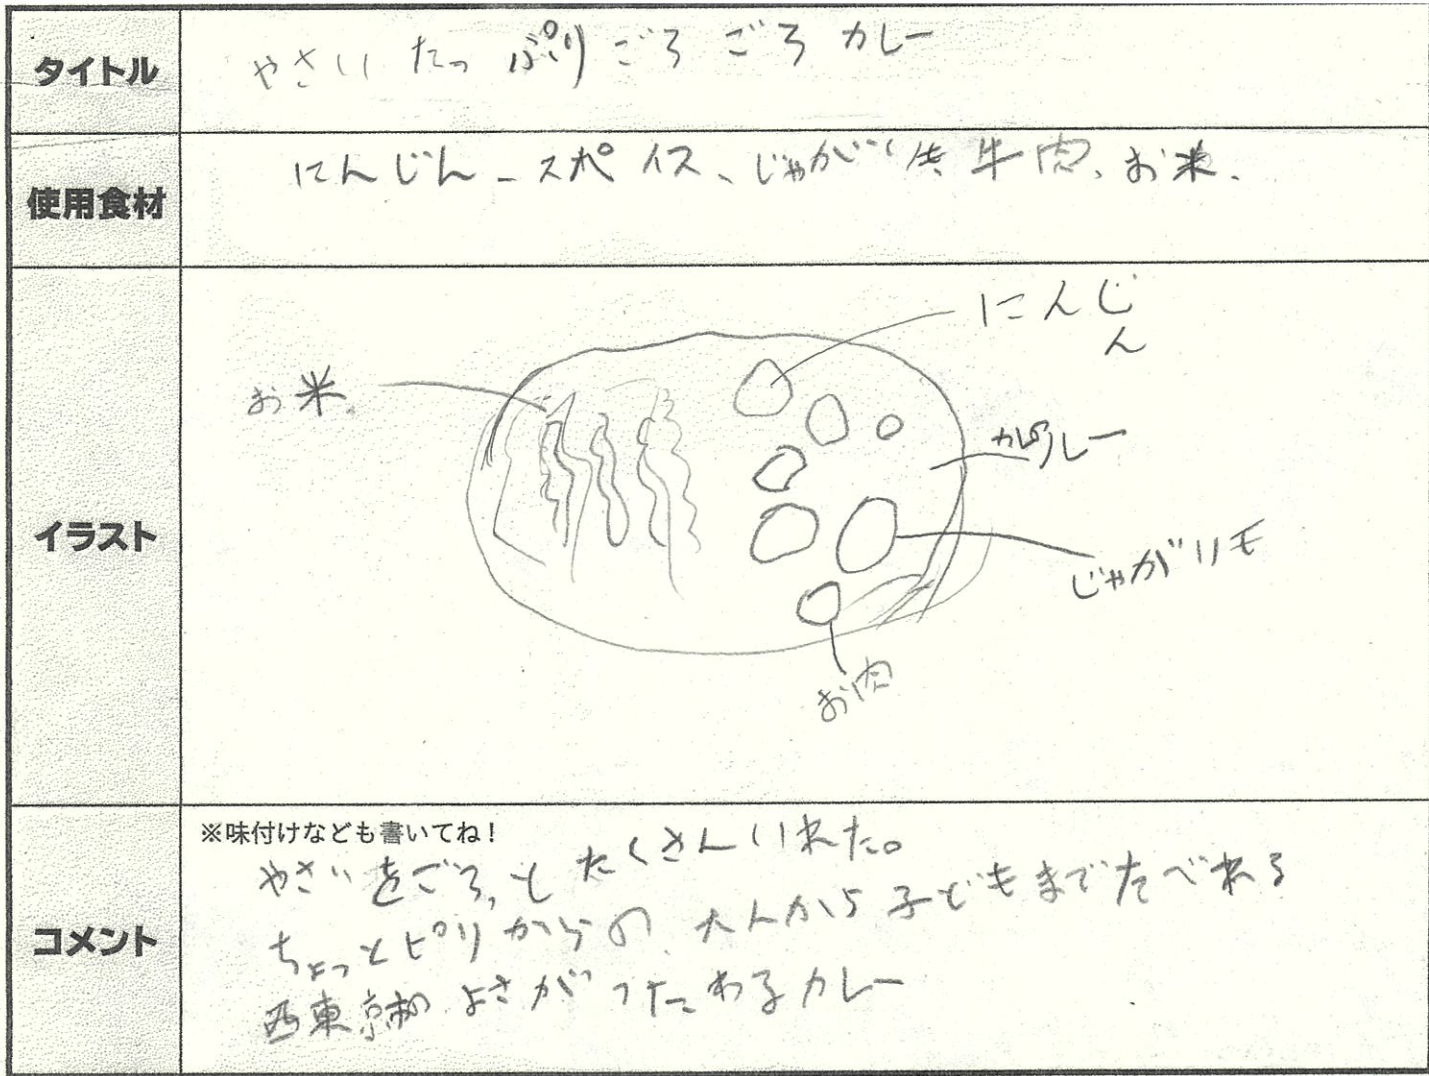 タイトル
やさいたっぷりごろごろカレー
使用食材
にんじん、スパイス、じゃがいも 牛肉、お米、
イラスト
にんじ
ん
お米
カレー
じゃがいモ
お肉
コメント
※味付けなども書いてね!
やさいをごろっとたくさんいれた。
ちょっとピリからの、大人から子どもまでたべれる
西東京市のよさがつたわるカレー